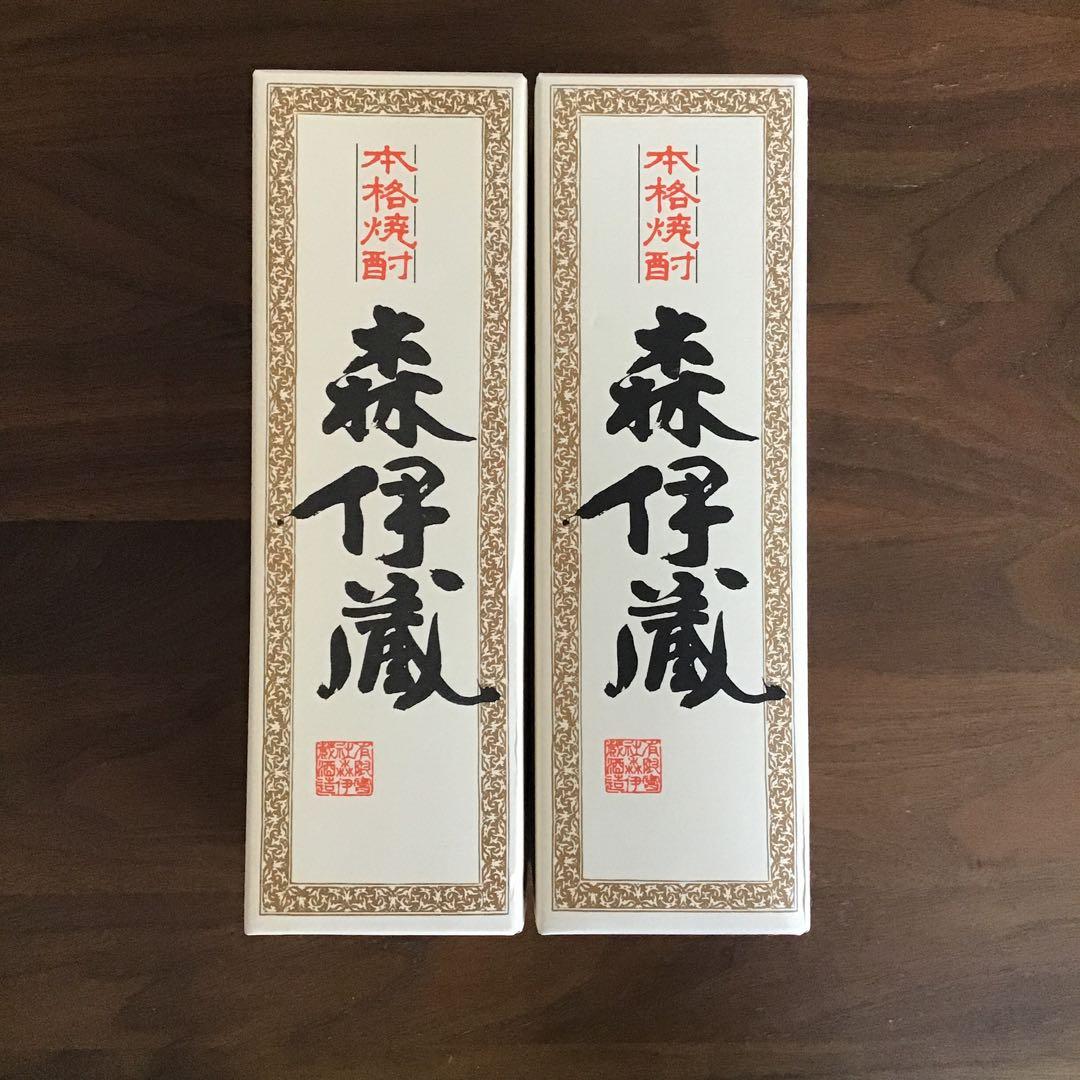 本格焼酎
森伊蔵
有限會社森伊蔵酒造
本格焼酎
森伊蔵
有限會社森伊蔵酒造